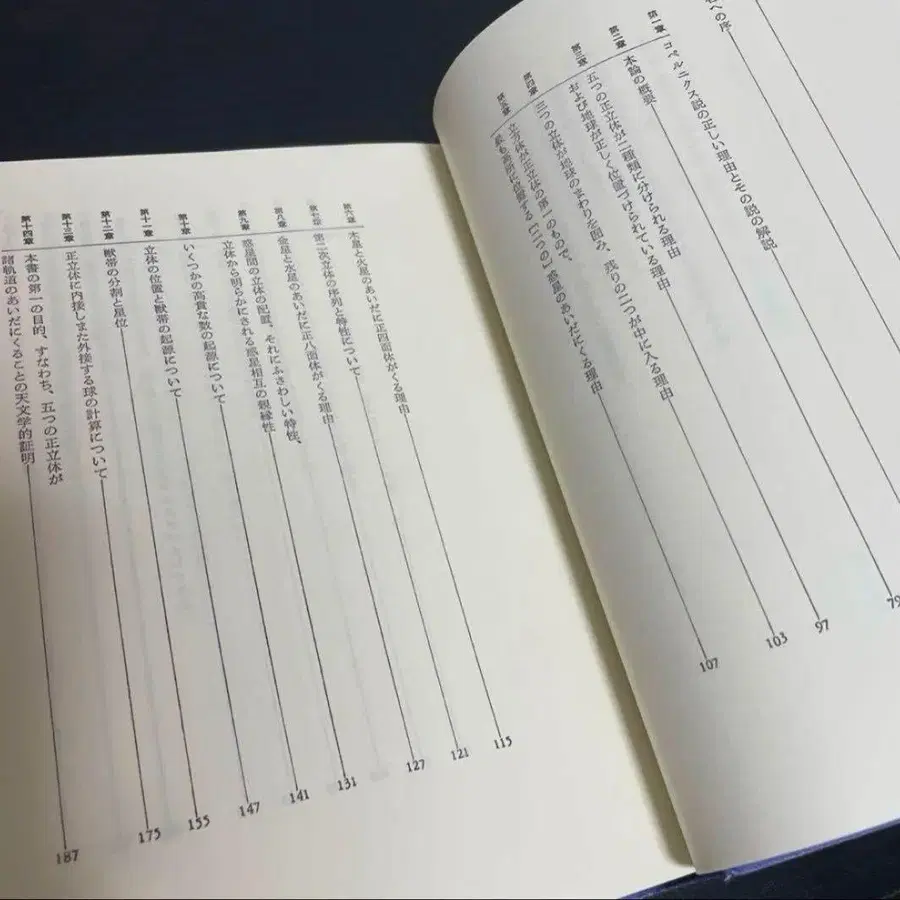 への序
第一章 コペルニクス説の正しい理由とその説の解説
第二章 本論の概要 79
第三章 五つの正立体が二種類に分けられる理由
および地球が正しく位置づけられている理由 97
第四章 三つの立体が地球のまわりを囲み、残りの二つが中に入る理由 103
第五章 立方体が正立体の第一のもので、
最も高所に位置する［二つの］惑星のあいだにくる理由 107
第六章 木星と火星のあいだに正四面体がくる理由 115
第七章 第二次立体の序列と特性について 121
第八章 金星と水星のあいだに正八面体がくる理由 127
第九章 惑星間の立体の配置、それにふさわしい特性、
立体から明らかにされる惑星相互の親縁性 131
第十章 いくつかの高貴な数の起源について 141
第十一章 立体の位置と獣帯の起源について 147
第十二章 獣帯の分割と星位 155
第十三章 正立体に内接しまた外接する球の計算について 175
第十四章 本書の第一の目的、すなわち、五つの正立体が
諸軌道のあいだにくることの天文学的証明 187